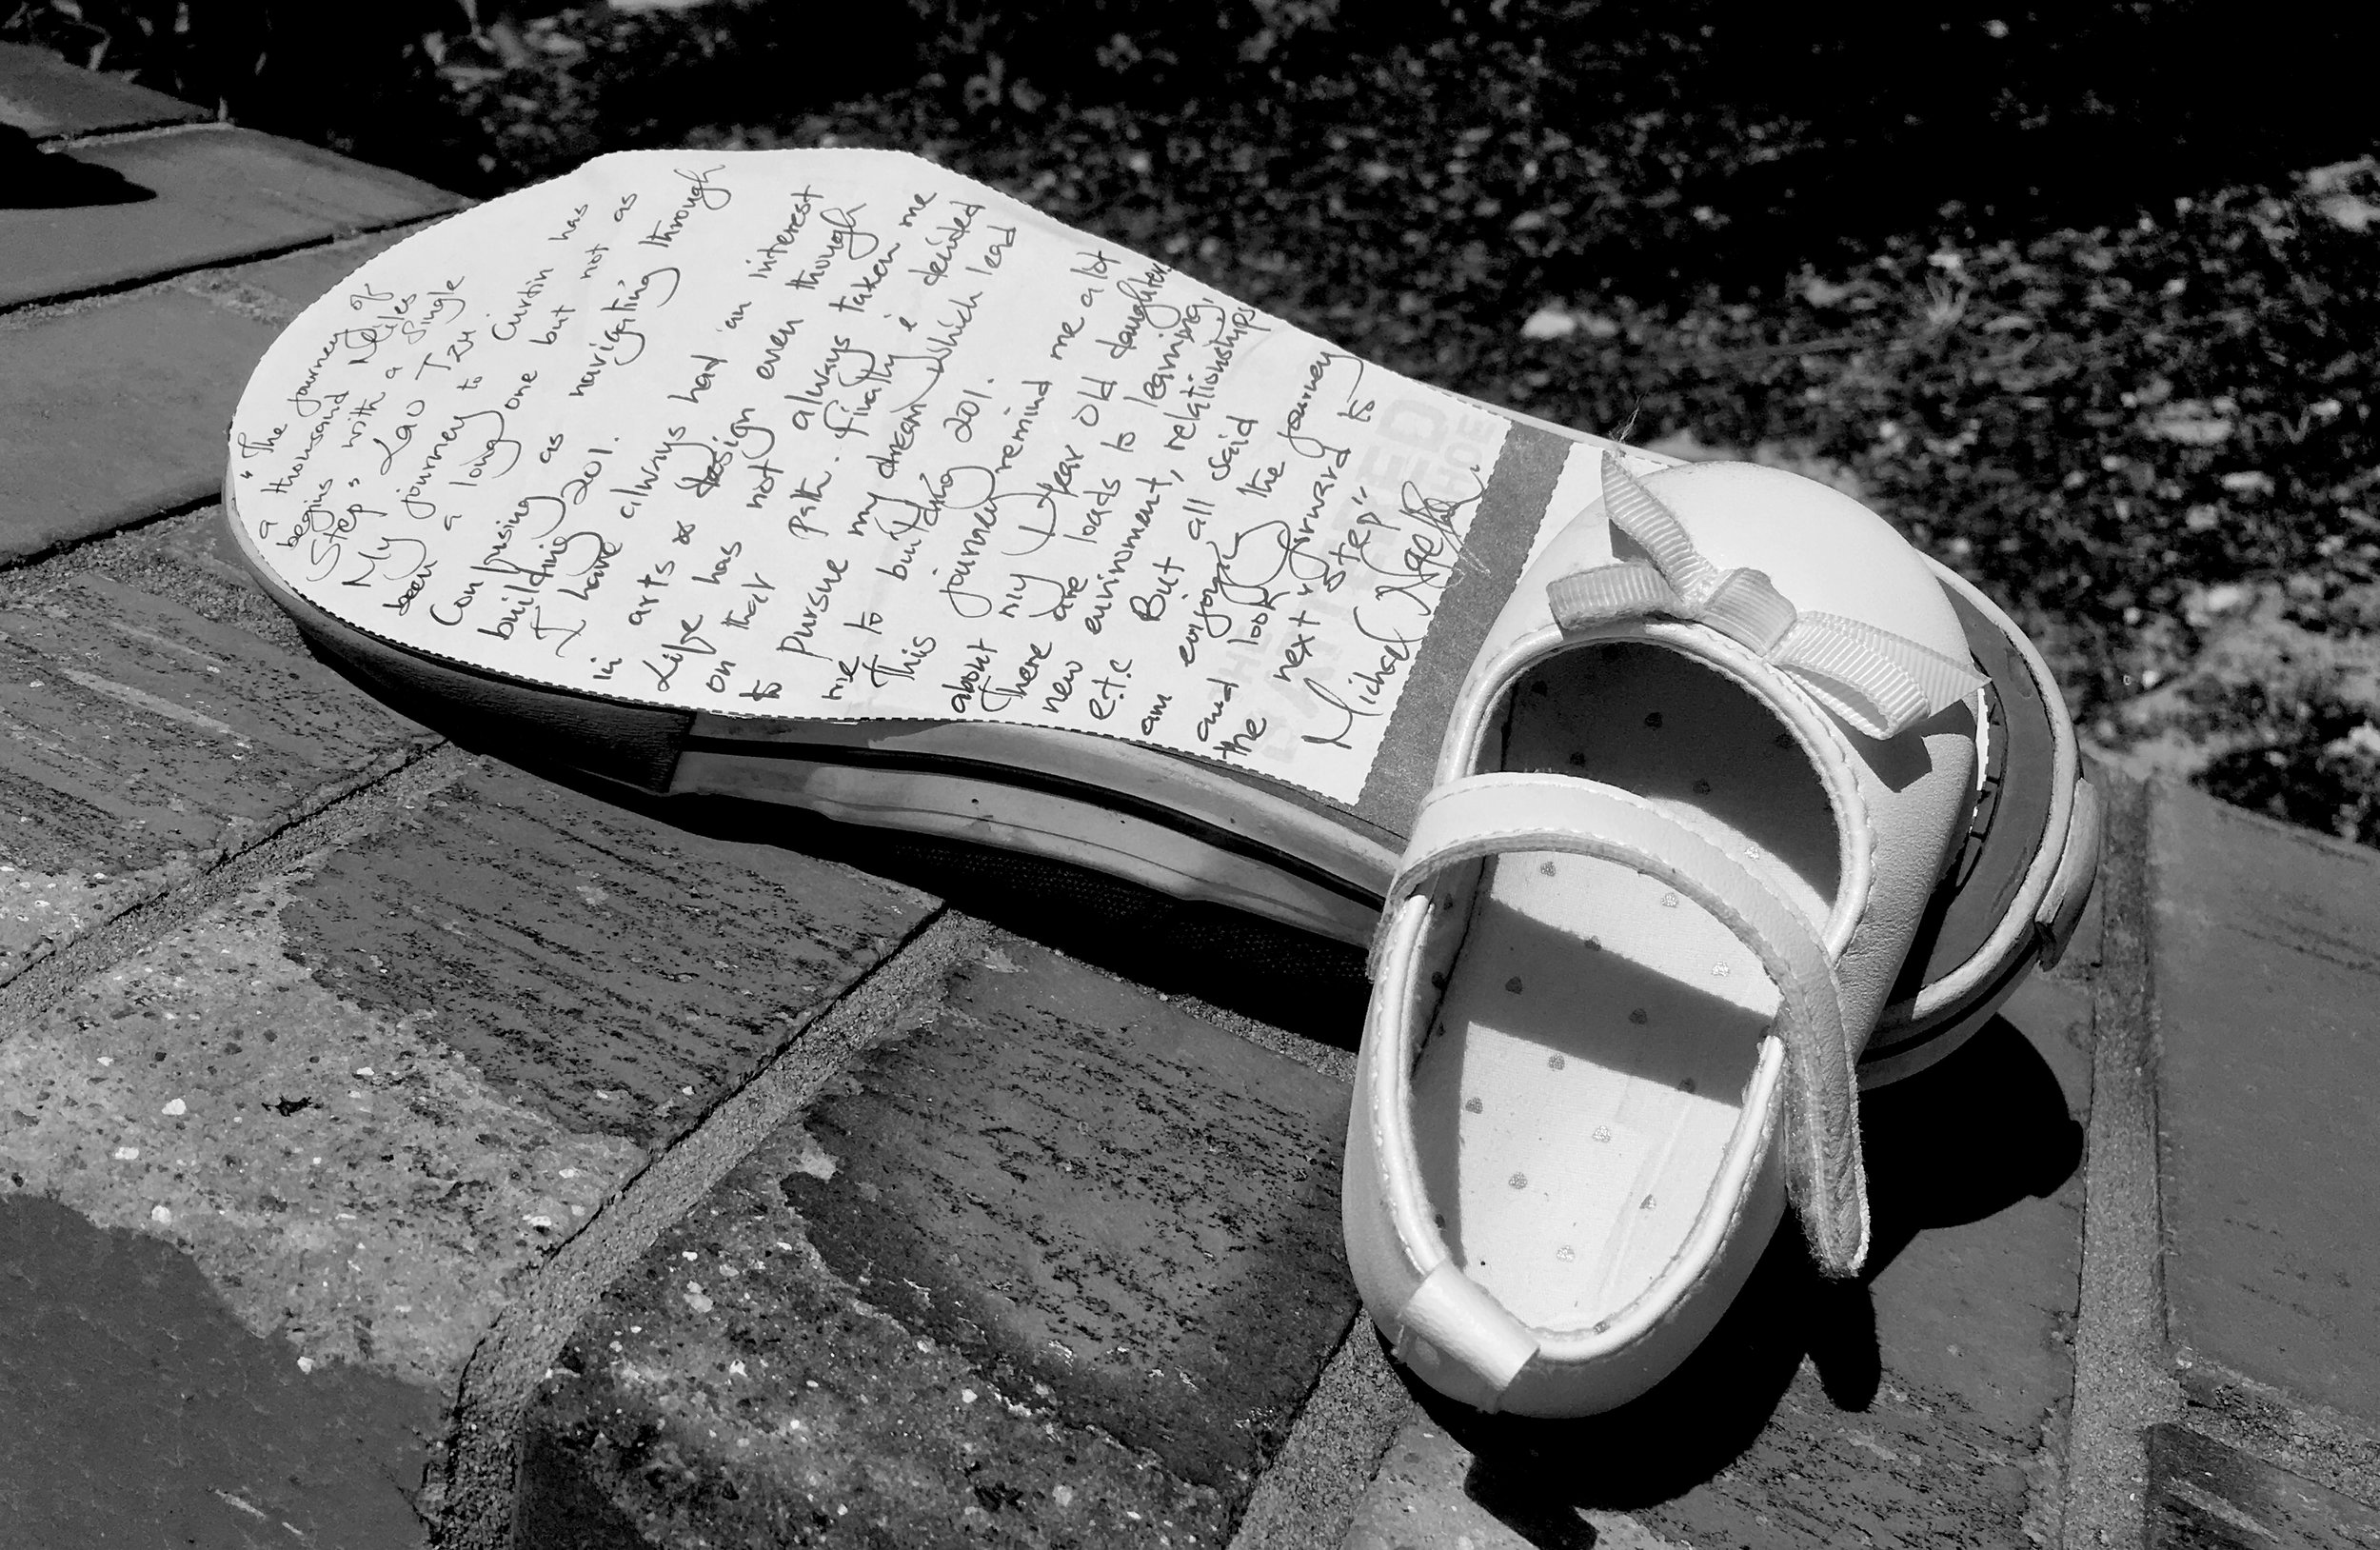 "The journey of
a thousand Miles
begins with a Single
Step" Lao Tzu
My journey to Curtin has
been a long one but not as
Confusing as navigating through
building 201.
I have always had an interest
in arts & design even though
Life has not always taken me
on that path. Finally i decided
to pursue my dream which lead
me to building 201.
This journey remind me a lot
about my 1 year old daughter.
There are loads to learning,
new environment, relationships
e.t.c But all said
am enjoying the journey
and look forward to
the next "step"
Michael